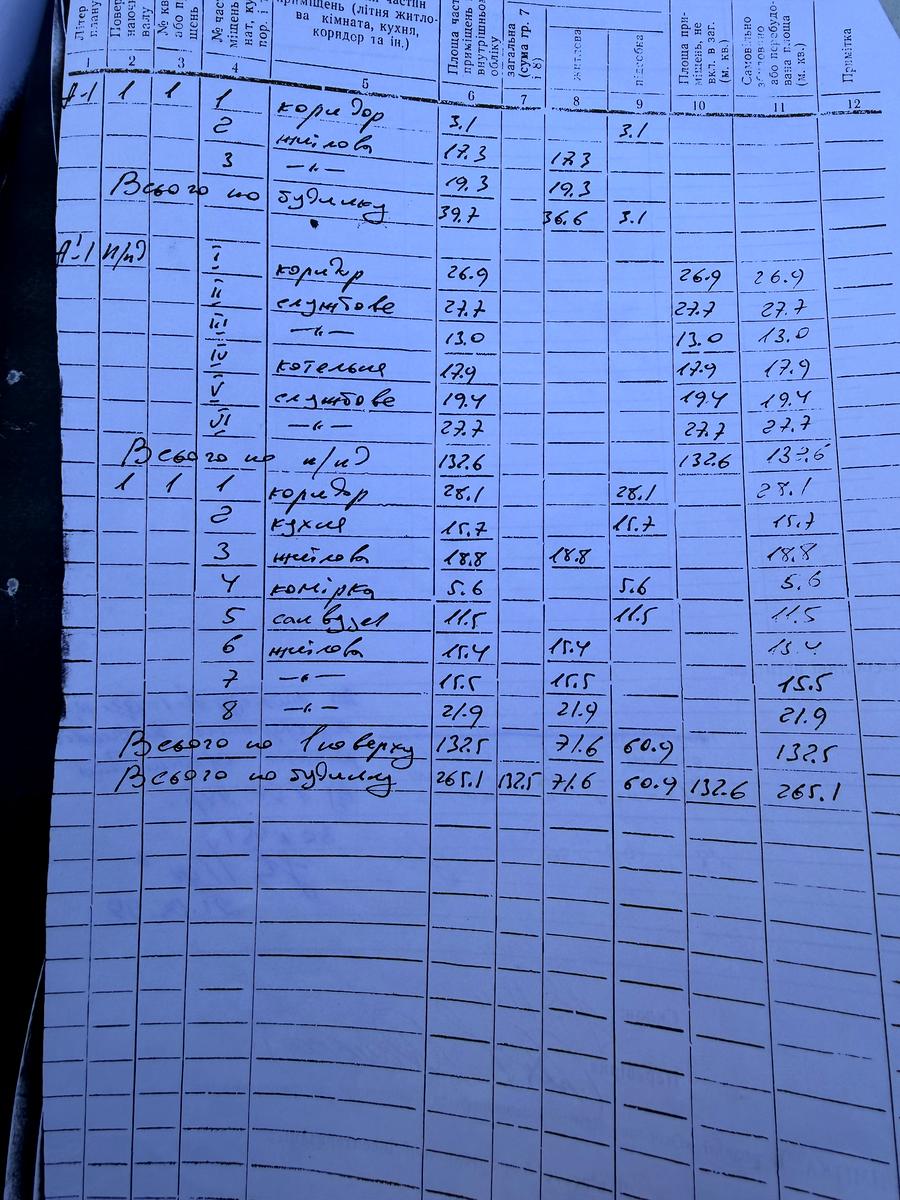 Літер плану
Повер наюч валу
№ кв або п щень
№ част міщень нат, ку пор.
частин приміщень (літня житло- ва кімната, кухня, корядор та ін.)
Площа част приміщень внутрішньо обліку
загальна (сума гр. 7 і 8)
житлова
підсобна
Площа при- міщень, не вкл. в заг. (м. кв.)
Самовільно збудована або перебудо- вана площа (м. кв.)
Примітка
1 2 3 4 5 6 7 8 9 10 11 12
А-1 1 1 1 коридор 3.1 3.1
2 житлова 17.3 17.3
3 —"— 19.3 19.3
Всього по будинку 39.7 36.6 3.1
А'-1 п/п I коридор 26.9 26.9 26.9
II службове 27.7 27.7 27.7
III —"— 13.0 13.0 13.0
IV котельня 17.9 17.9 17.9
V службове 19.4 19.4 19.4
VI —"— 27.7 27.7 27.7
Всього по п/п 132.6 132.6 132.6
1 1 1 коридор 28.1 28.1 28.1
2 кухня 15.7 15.7 15.7
3 житлова 18.8 18.8 18.8
4 комірка 5.6 5.6 5.6
5 санвузел 11.5 11.5 11.5
6 житлова 15.4 15.4 15.4
7 —"— 15.5 15.5 15.5
8 —"— 21.9 21.9 21.9
Всього по 1 поверху 132.5 71.6 60.9 132.5
Всього по будинку 265.1 132.5 71.6 60.9 132.6 265.1